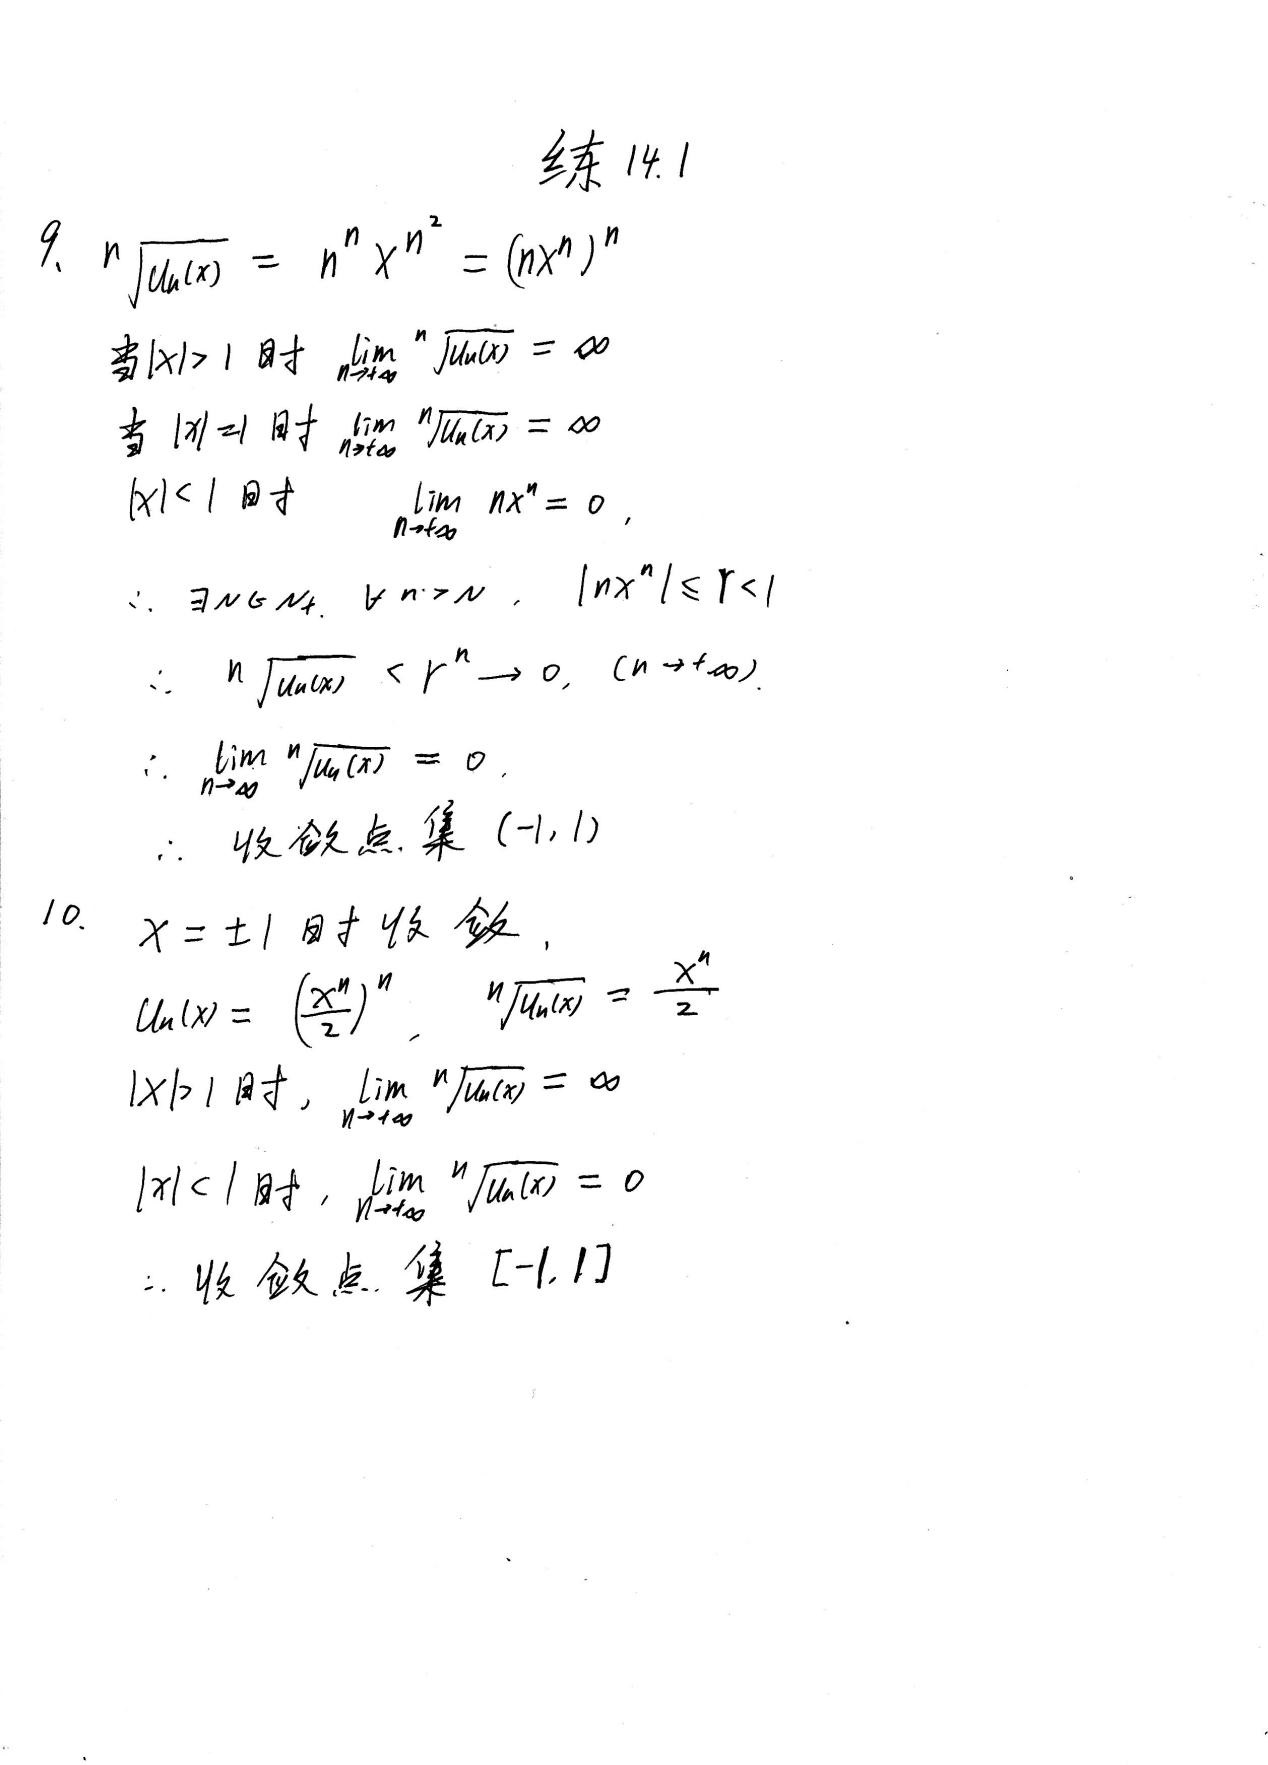 练 14.1
9. ⁿ√(uₙ(x)) = nⁿ x^(n²) = (nxⁿ)ⁿ
当|x|>1时 lim_(n→+∞) ⁿ√(uₙ(x)) = ∞
当|x|=1时 lim_(n→+∞) ⁿ√(uₙ(x)) = ∞
|x|<1时 lim_(n→+∞) nxⁿ = 0,
∴ ∃N∈N₊. ∀n>N, |nxⁿ|≤r<1
∴ ⁿ√(uₙ(x)) < rⁿ → 0, (n→+∞).
∴ lim_(n→∞) ⁿ√(uₙ(x)) = 0.
∴ 收敛点集 (-1,1)
10. x=±1时收敛,
uₙ(x) = (xⁿ/2)ⁿ, ⁿ√(uₙ(x)) = xⁿ/2
|x|>1时, lim_(n→+∞) ⁿ√(uₙ(x)) = ∞
|x|<1时, lim_(n→+∞) ⁿ√(uₙ(x)) = 0
∴ 收敛点集 [-1,1]